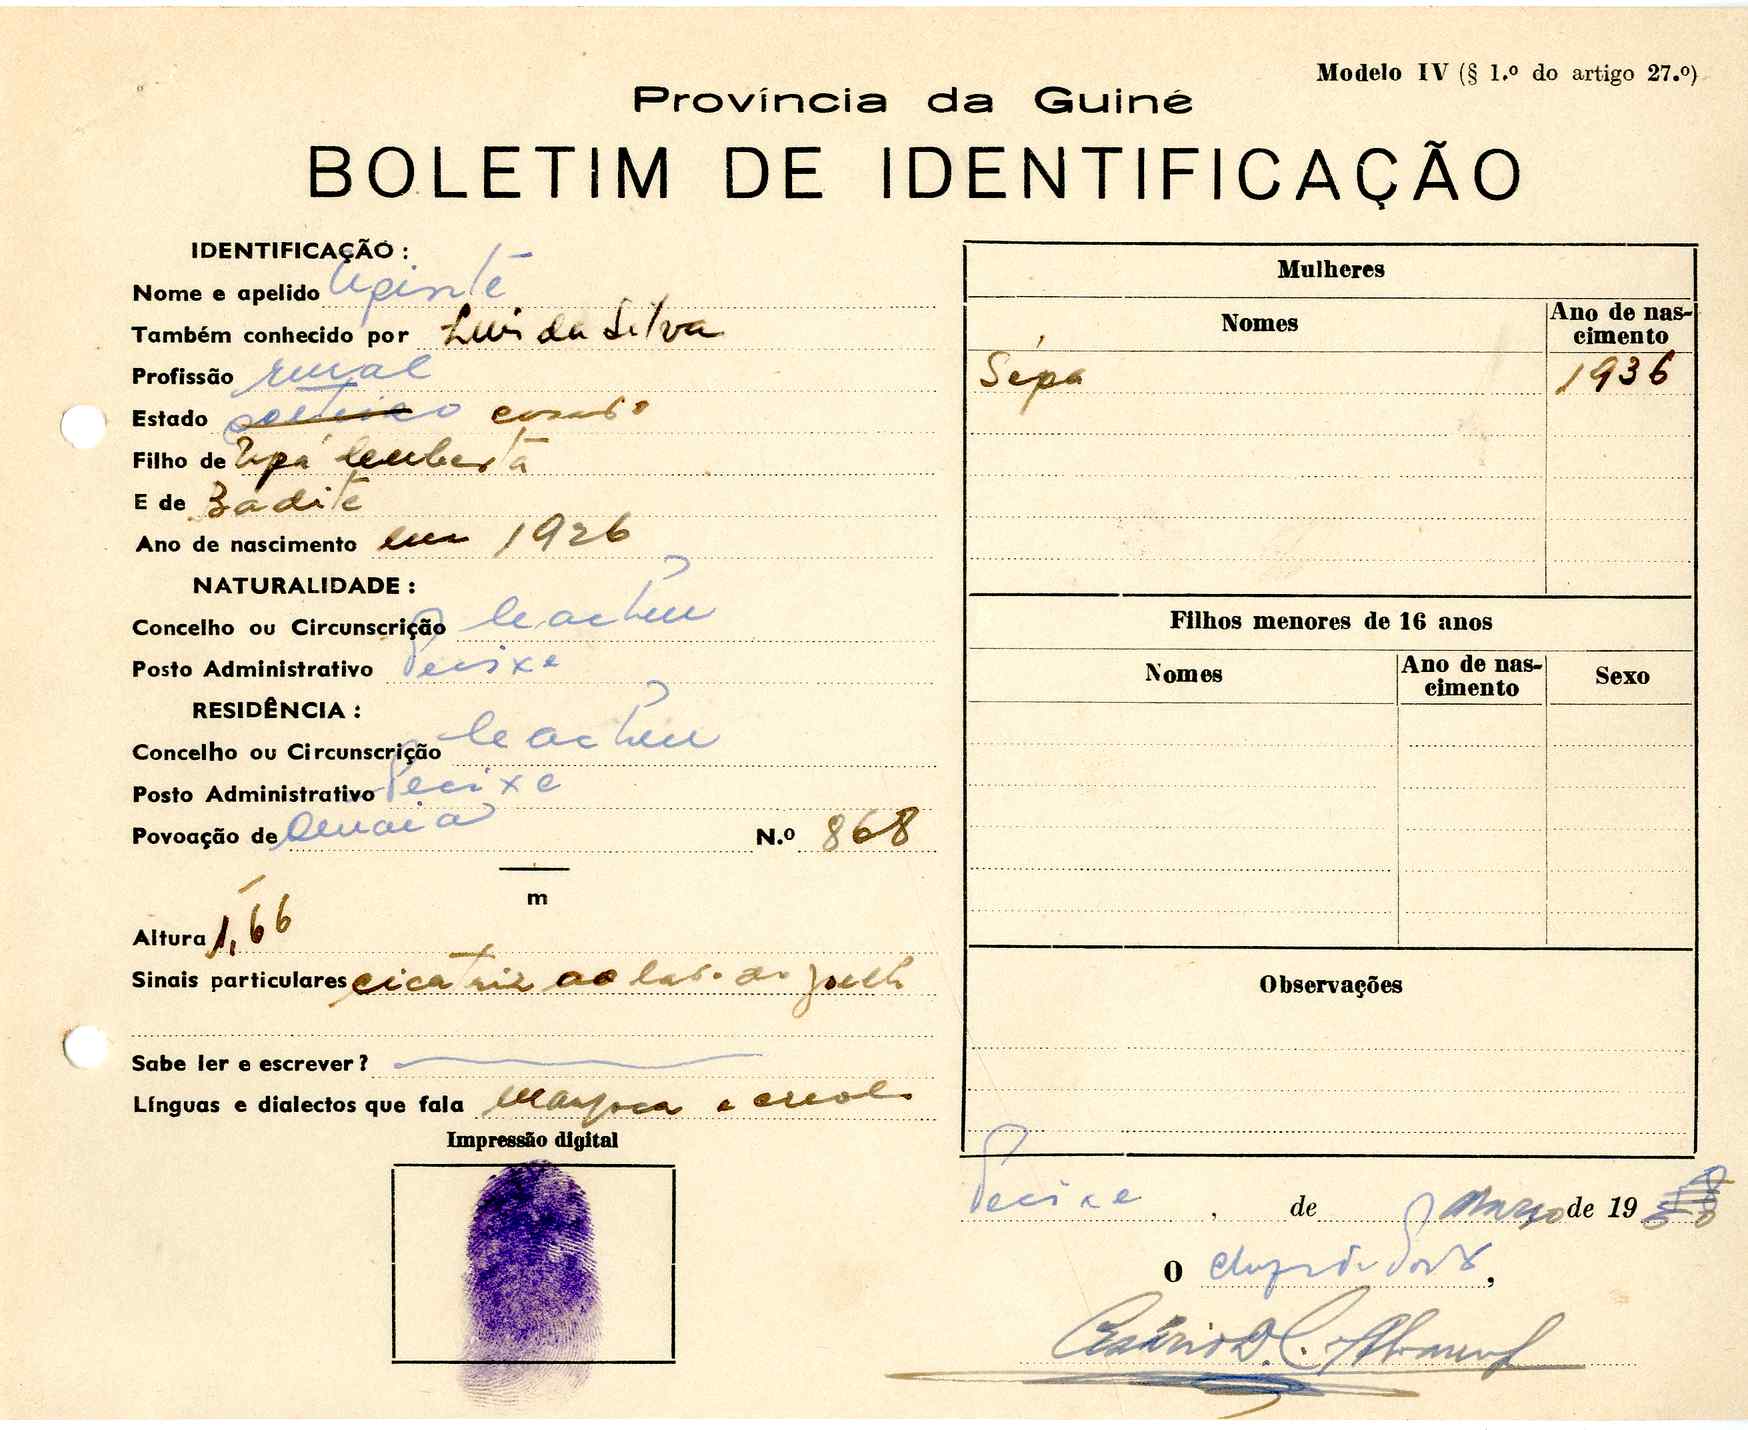 Modelo IV (§ 1.º do artigo 27.º)
Província da Guiné
BOLETIM DE IDENTIFICAÇÃO
IDENTIFICAÇÃO :
Nome e apelido
Também conhecido por Luis da Silva
Profissão rural
Estado solteiro casado
Filho de
E de
Ano de nascimento em 1926
NATURALIDADE :
Concelho ou Circunscrição Cacheu
Posto Administrativo Pecixe
RESIDÊNCIA :
Concelho ou Circunscrição Cacheu
Posto Administrativo Pecixe
Povoação de
N.º 868
m
Altura 1,66
Sinais particulares cicatriz ao lado do
Sabe ler e escrever?
Línguas e dialectos que fala manjaca e crioulo
Impressão digital
Mulheres
Nomes Ano de nascimento
Sépa 1936
Filhos menores de 16 anos
Nomes Ano de nascimento Sexo
Observações
Pecixe, de Março de 19
O Chefe de Posto,